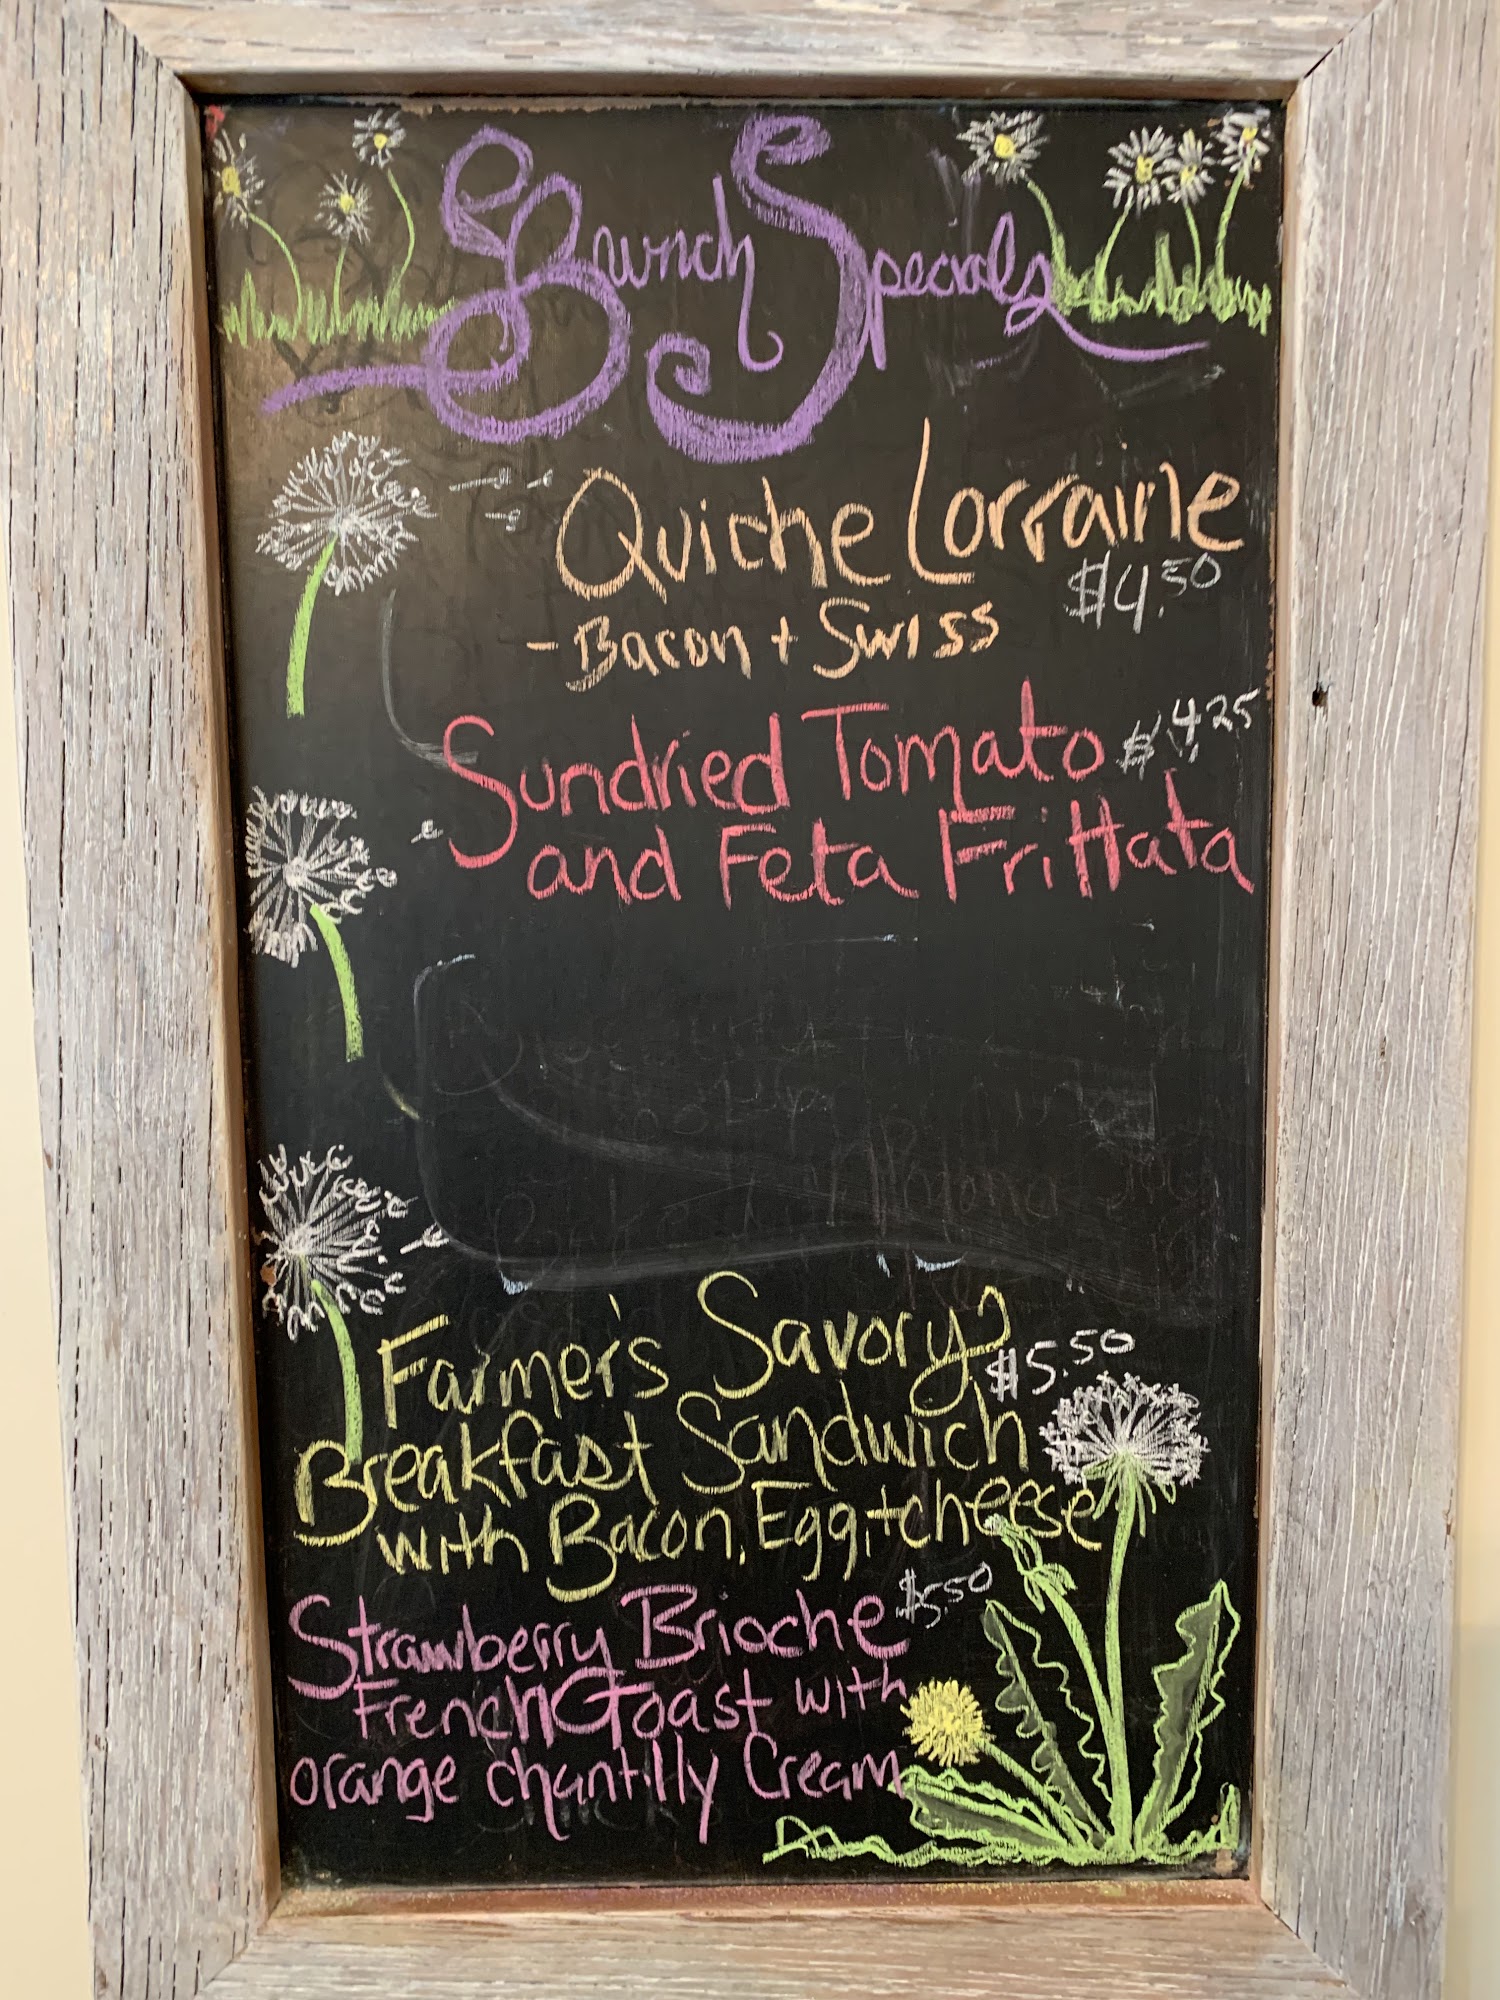 Brunch Specials
Quiche Lorraine
$4.50
- Bacon + Swiss
Sundried Tomato $4.25
and Feta Frittata
Farmer's Savory
$5.50
Breakfast Sandwich
with Bacon, Egg, + cheese
Strawberry Brioche $5.50
French Toast with
orange chantilly Cream